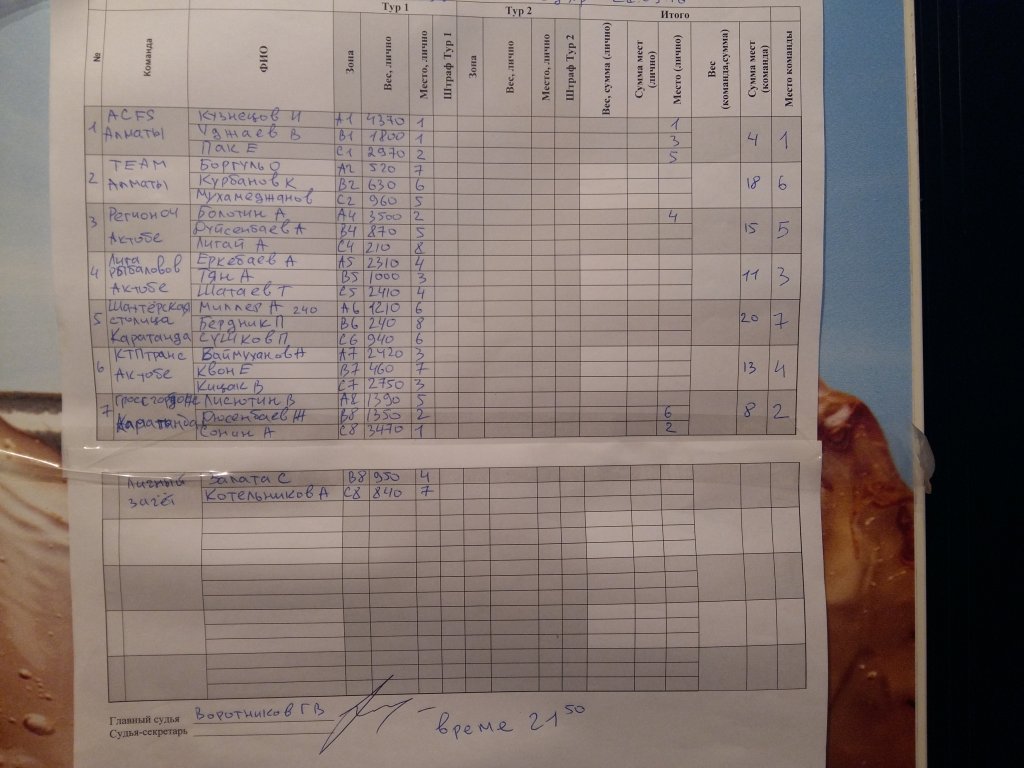 Тур 1 Тур 2 Итого
№ Команда ФИО Зона Вес, лично Место, лично Штраф Тур 1 Зона Вес, лично Место, лично Штраф Тур 2 Вес, сумма (лично) Сумма мест (лично) Место (лично) Вес (команда,сумма) Сумма мест (команда) Место команды
1 ACFS Кузнецов И А1 4370 1 1
Алматы Уджаев В В1 1800 1 3 4 1
Пак Е С1 2970 2 5
2 TEAM Боргуль О А2 520 7
Алматы Курбанов К В2 630 6 18 6
Мухамеджанов С2 960 5
3 Регион 04 Болотин А А4 3500 2 4
Актобе Дуйсенбаев А В4 870 5 15 5
Лигай А С4 210 8
4 Лига Еркебаев А А5 2310 4
рыболовов Тян А В5 1000 3 11 3
Актобе Шатаев Т С5 2410 4
5 Шахтёрская Миллер А 240 А6 1210 6
столица Бердник П В6 240 8 20 7
Караганда Сушков П С6 940 6
6 КТПтранс Ваймуханов Н А7 2420 3
Актобе Квон Е В7 460 7 13 4
Кицак В С7 2750 3
7 Лисютин В А8 1390 5
Караганда Дюсенбаев Ж В8 1350 2 6 8 2
Сонин А С8 3470 1 2
Личный Залата С В8 950 4
зачёт Котельников А С8 840 7
Главный судья Воротников Г В
Судья-секретарь
време 21 50